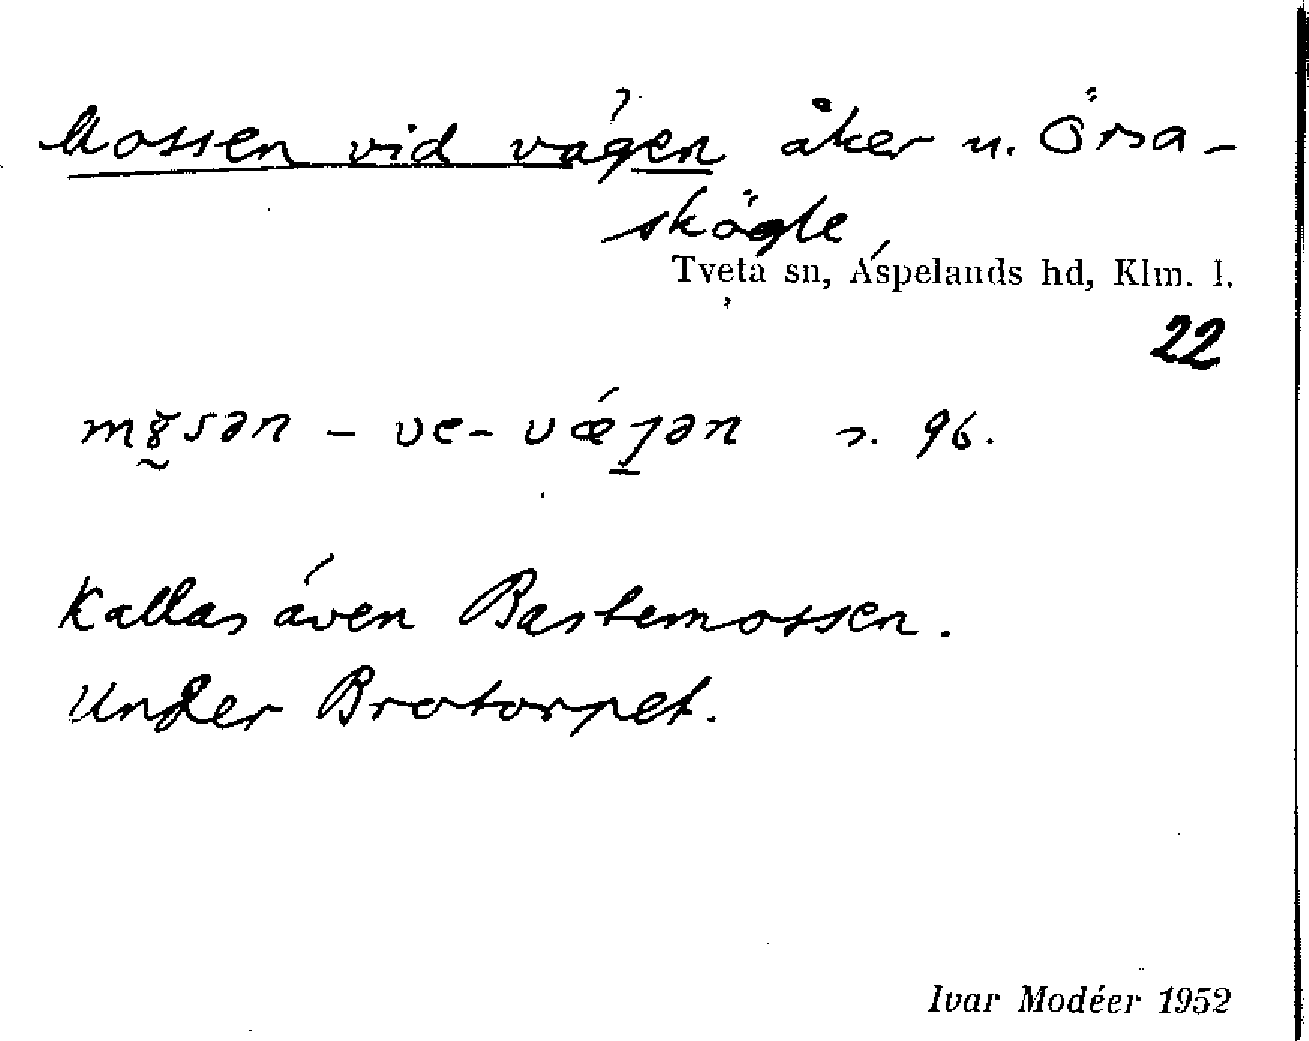 Mossen vid vägen åker u. Örsa-
skögle
Tveta sn, Aspelands hd, Klm. l.
22
mɣ̆sən - ve - vǽȷən s. 96.
Kallas även Bastemossen.
Under Brotorpet.
Ivar Modéer 1952